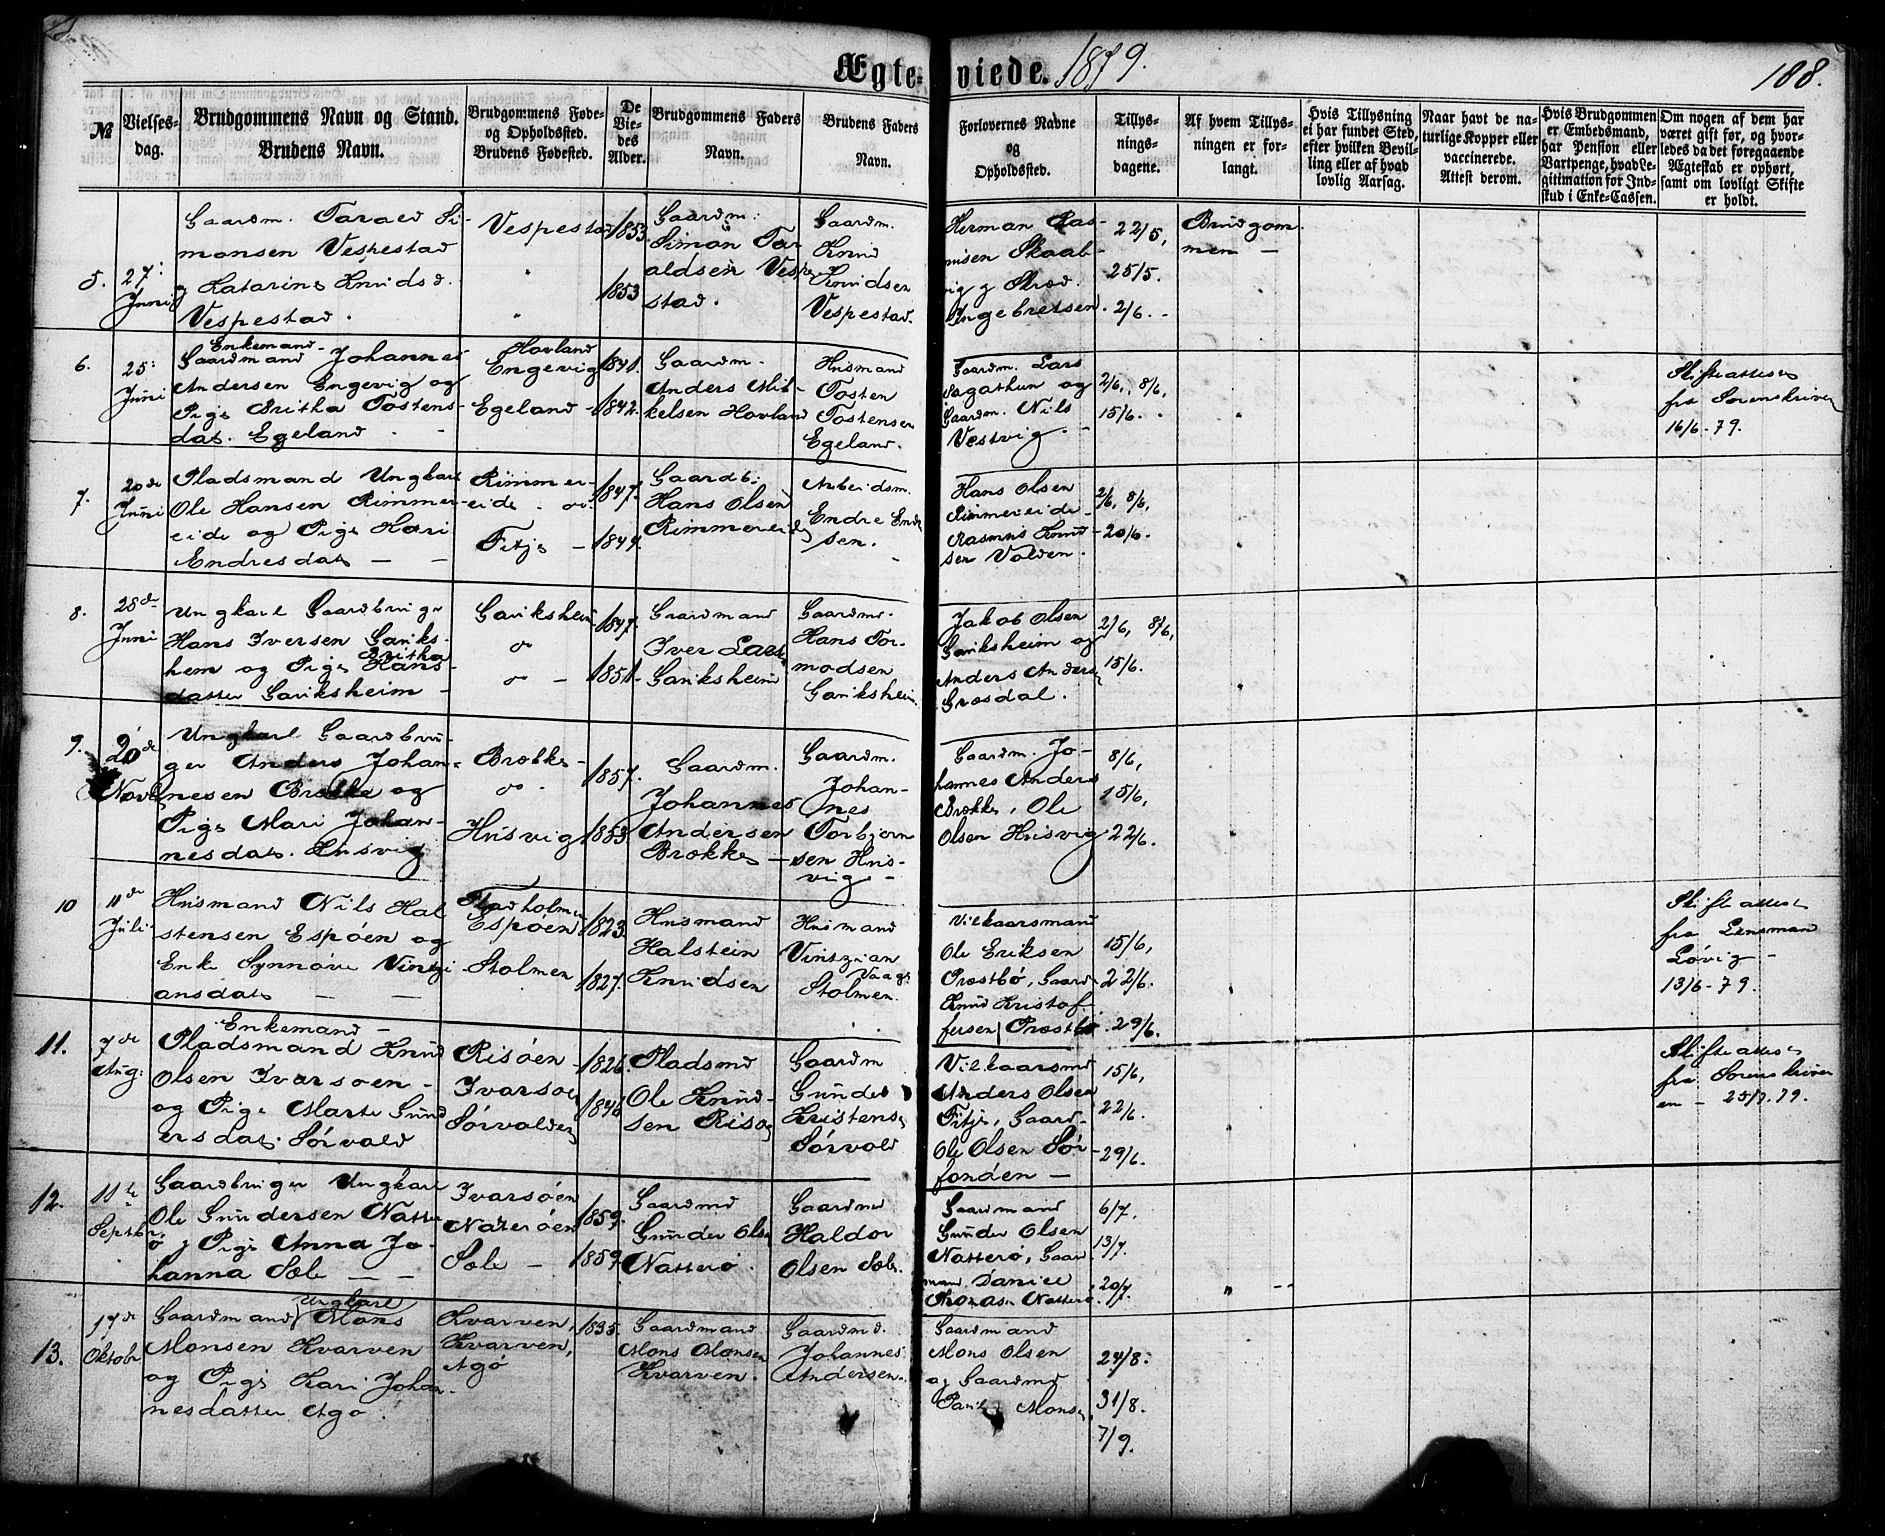 Ægteviede. 1879.
188.
№
Vielsesdag.
Brudgommens Navn og Stand.
Brudens Navn.
Brudgommens Føde- og Opholdssted.
Brudens Fødested.
De Viedes Alder.
Brudgommens Faders Navn.
Brudens Faders Navn.
Forlovernes Navne og Opholdsted.
Tillysningsdagene.
Af hvem Tillysningen er forlangt.
Hvis Tillysning ei har fundet Sted, efter hvilken Bevilling eller af hvad lovlig Aarsag.
Naar havt de naturlige Kopper eller vaccinerede. Attest derom.
Hvis Brudgommen er Embedsmand, har Pension eller Vartpenge, hvad Legitimation for Indskud i Enke-Cassen.
Om nogen af dem har været gift før, og hvorledes da det foregaaende Ægteskab er ophørt, samt om lovligt Skifte er holdt.
5.
27: Juni
Gaardm. Tarald Si-
monsen Vespestad
og Katarina Knudsd.
Vespestad.
Vespestad
"
1853
1853
Gaardm.
Simon Tar
aldsen Vespe
stad.
Gaardm.
Knud
Knudsen
Vespestad.
Herman Ras-
musen Skaab-
vig
Ingebretsen
22/5,
25/5.
2/6.
Brudgom
men
6.
25: Juni
Enkemand
Gaardmand Johannes
Andersen Engevig og
Pige Britha Tostens-
dat. Egeland
Hovland
Engevig
Egeland
1841.
1842.
Gaardm.
Anders Mik
kelsen Hovland
Husmand
Tosten
Tostensen
Egeland.
Gaardm. Lars
og
Gaardm. Nils
Vestvig.
2/6, 8/6,
15/6.
"
Skifteattest
fra Sorenskriver
16/6-79.
7.
20de Juni
Pladsmand Ungkarl
Ole Hansen Rimmer-
eide og Pige Kari
Endresdat
Rimmer-
eide
Fitje
1847.
1849.
Gaardb.
Hans Olsen
Rimmereide
Arbeidsm.
Endre Endre
sen.
Hans Olsen
Rimmereide
Rasmus Knud-
sen Valden.
2/6, 8/6,
20/6.
8.
28de Juni
Ungkarl Gaardbruger
Hans Iversen Gariks-
hem og Pige Britha Hans-
datter Gariksheim
Gariksheim
do
do
1847.
1851.
Gaardmand
Iver Lars
Gariksheim
Gaardmd.
Hans Tor-
modsen
Gariksheim
Jakob Olsen
Gariksheim og
Anders Anders
Græsdal.
2/6, 8/6,
15/6.
"
9.
20de Novb
Ungkarl Gaardbru-
ger Anders Johan-
nesen Brække og
Pige Mari Johan-
nesdat. Husvig
Brække
do
Husvig
1857.
1853.
Gaardm.
Johannes
Andersen
Brække
Gaardm.
Johan-
nes
Torbjørn
sen Hus-
vig
Gaardm. Jo-
hannes Anders
Brække, Ole
Olsen Husvig
8/6,
15/6,
22/6.
"
10
11de Juli
Husmand Nils Hal
stensen Espøen og
Enke Synnøve Vintzi-
ansdat
Fladholmen
Espøen
Stolmen
1823.
1827.
Husmand
Halstein
Knudsen
Husmand
Vintzian
Vaage
Stolmen.
Vilkaarsmand
Ole Eriksen
Præstbø, Gaard
Knud Kristof
fersen Præstbø
15/6,
22/6.
29/6.
Skifteattest
fra Lensmand
Løvig
13/6-79.
11.
7de Aug:
Enkemand
Pladsmand Knud
Olsen Ivarsøen
og Pige Marte Gund
ersdat. Sørvald
Risøen
Ivarsøen
Sørvalden
1826.
1846
Pladsmd
Ole Knud-
sen Risø
Gaardm
Gunder
Kristens
Sørvold
Vilkaarsmd
Anders Olsen
Fitje, Gaard-
Ole Olsen Sør
fonden
15/6,
22/6.
29/6.
Skifteattest
fra Sorenskriver
en 25/7.79.
12.
11te Septbr.
Gaardbruger Ungkarl
Ole Gundersen Natter
ø og Pige Anna Jo-
hanna Sæle
Ivarsøen
Natterøen
Sæle
1859.
1859.
Gaardmd
Gunder Olse
Natterø.
Gaardmd
Haldor
Olsen Sæle.
Gaardmand
Gunder Olsen
Natterø, Gaar
mand Daniel
Thomas. Natterø
6/7.
13/7.
20/7.
"
13.
17de Oktobr
Gaardmand Ungkarl Mons
Monsen Kvarven
og Pige Kari Johan-
nesdatter Agø.
Kvarven,
Kvarven,
Agø
1835.
Gaardmand
Mons Monsen
Kvarven.
Gaardmd.
Johannes
Andersen.
Gaardmand
Mons Olsen
og Gaardmd
Paul Monse
24/8.
31/8.
7/9.